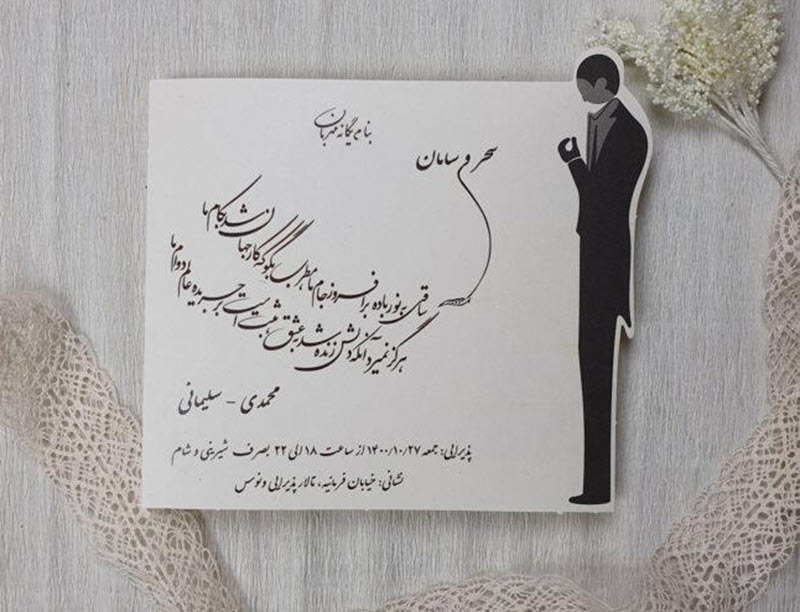 بنام یگانه مهربان
سحر و سامان
ساقی به نور باده برافروز جام ما مطرب بگو که کار جهان شد بکام ما
هرگز نمیرد آنکه دلش زنده شد بعشق ثبت است بر جریده عالم دوام ما
محمدی - سلیمانی
پذیرایی: جمعه ۱۴۰۰/۱۰/۲۷ از ساعت ۱۸ الی ۲۲ بصرف شیرینی و شام
نشانی: خیابان فرمانیه، تالار پذیرایی ونوس